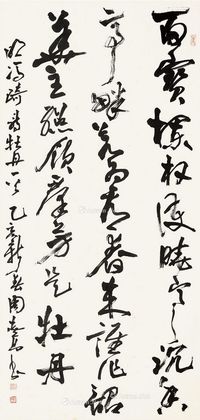 百寶欄杆護曉寒沉香
亭畔若為看春來誰作韶
華主總領群芳是牡丹
明馮琦詩牡丹一首乙亥新春周慧珺書